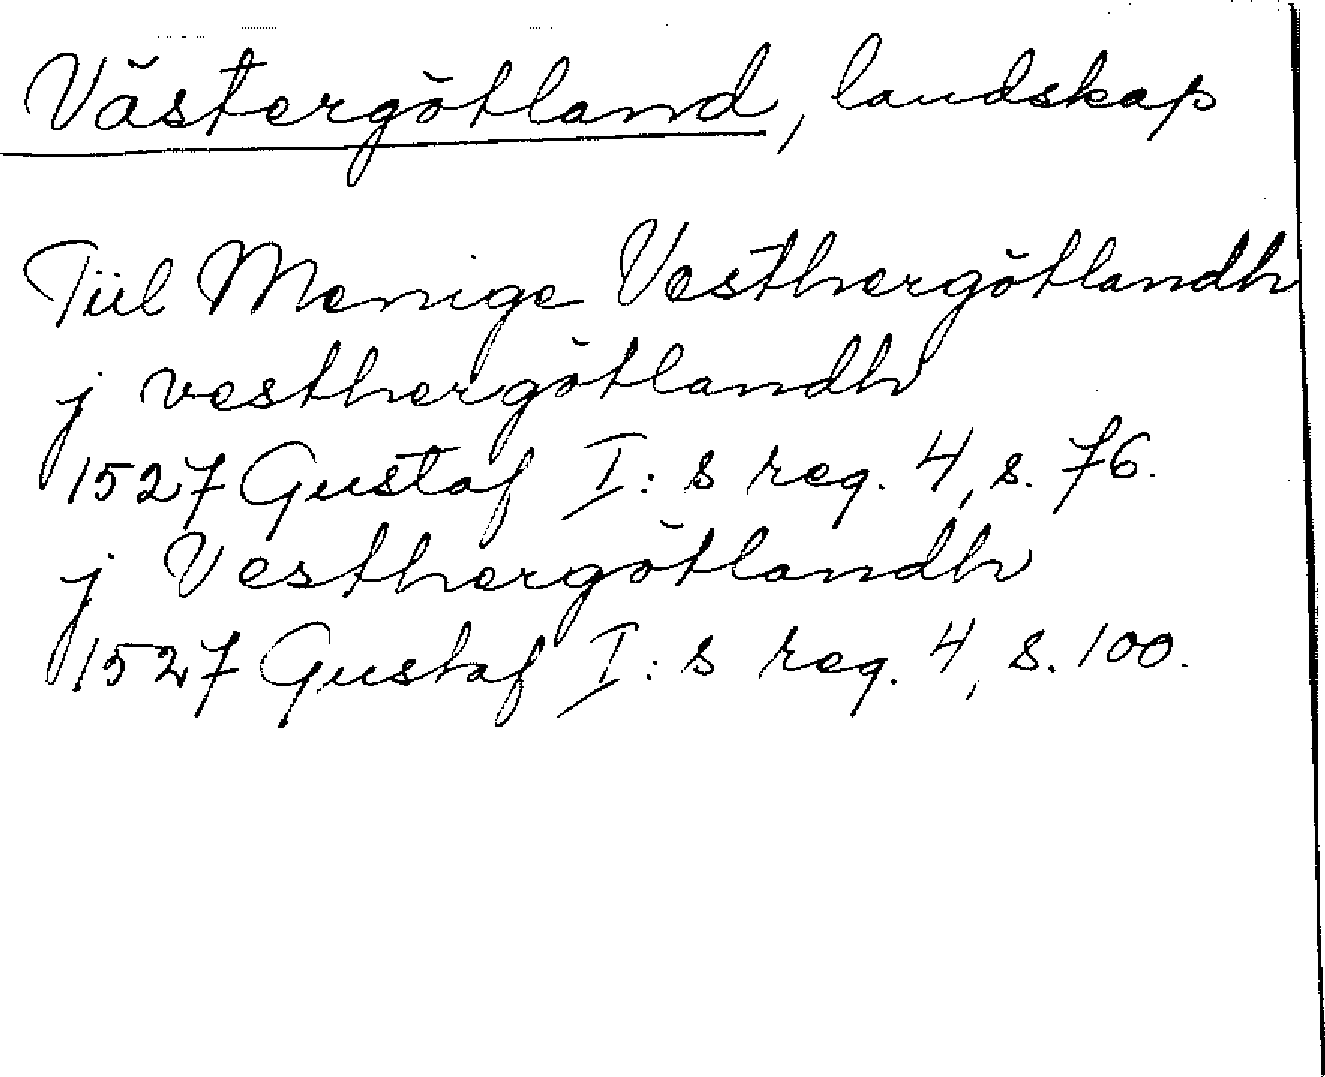 Västergötland, landskap
Tiil Menige Vesthergötlandh
j vesthergötlandh
1527 Gustaf I:s reg. 4, s. 76.
j Vesthergötlandh
1527 Gustaf I:s reg. 4, s. 100.